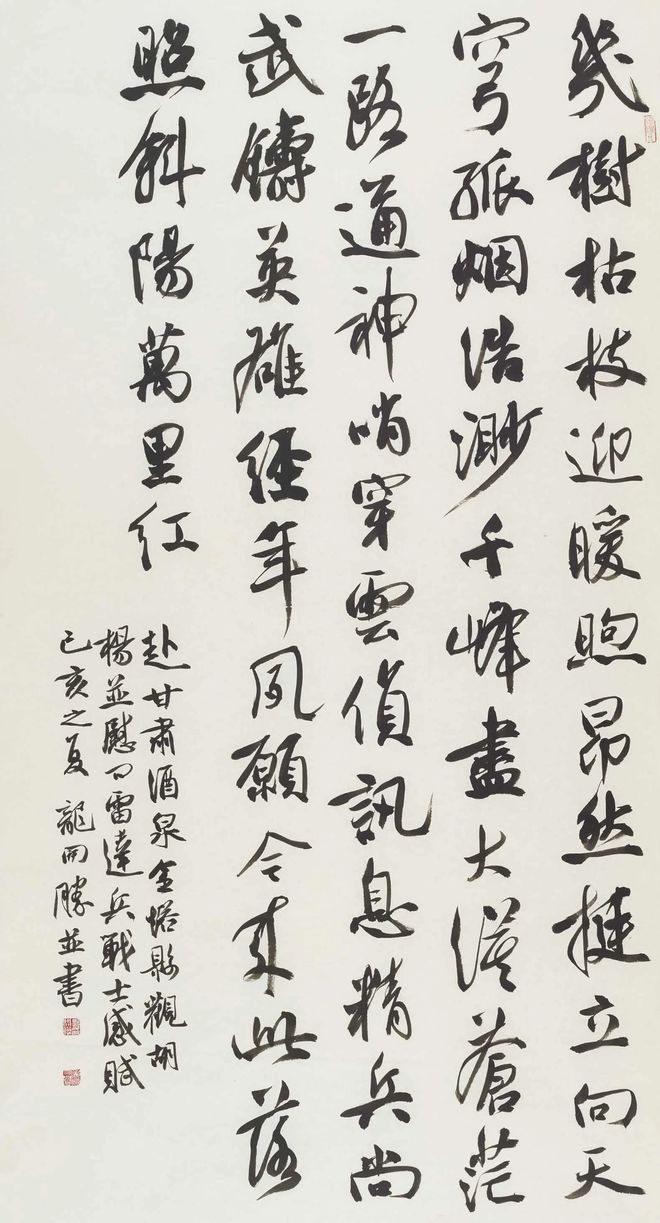 幾樹枯枝迎暖煦昂然挺立向天
穹孤烟浩渺千峰盡大漠蒼茫
一路通神哨穿雲偵訊息精兵尚
武鑄英雄經年夙願今來此落
照斜陽萬里紅
赴甘肅酒泉金塔縣觀胡
楊並慰問雷達兵戰士感賦
己亥之夏龍開勝並書